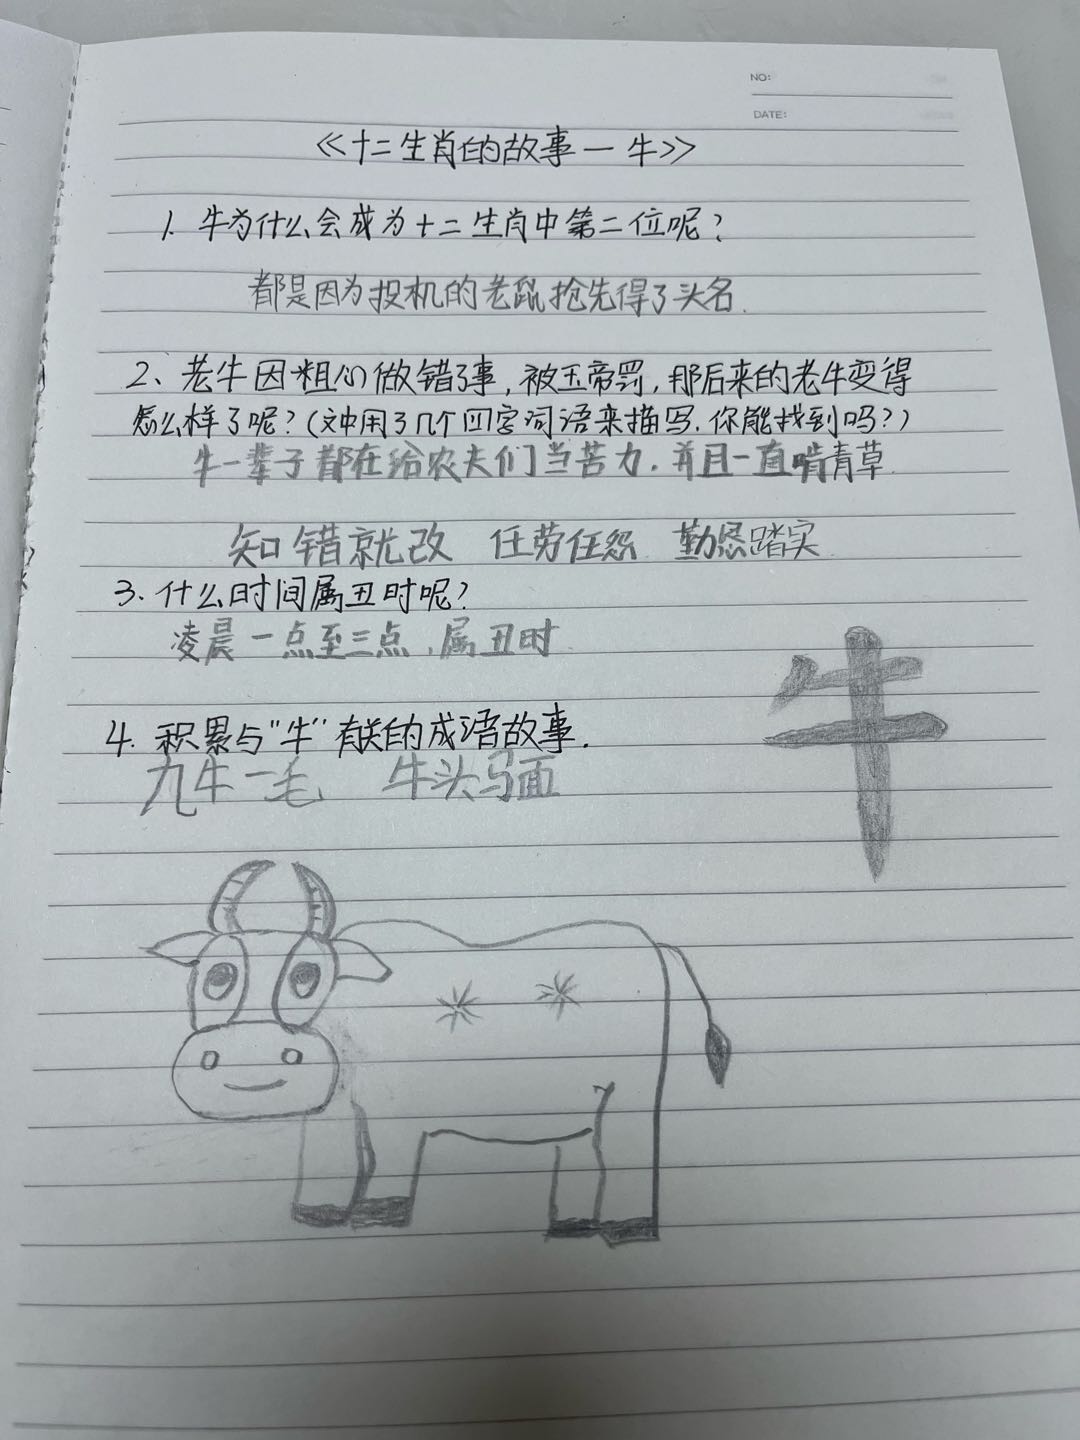 NO:
DATE:
《十二生肖的故事一牛》
1. 牛为什么会成为十二生肖中第二位呢？
都是因为投机的老鼠抢先得了头名.
2、老牛因粗心做错了事，被玉帝罚，那后来的老牛变得
怎么样了呢？（文中用了几个四字词语来描写，你能找到吗？）
牛一辈子都在给农夫们当苦力，并且一直啃青草.
知错就改 任劳任怨 勤恳踏实
3. 什么时间属丑时呢？
凌晨一点至三点，属丑时
牛
4. 积累与"牛"有关的成语故事.
九牛一毛 牛头马面